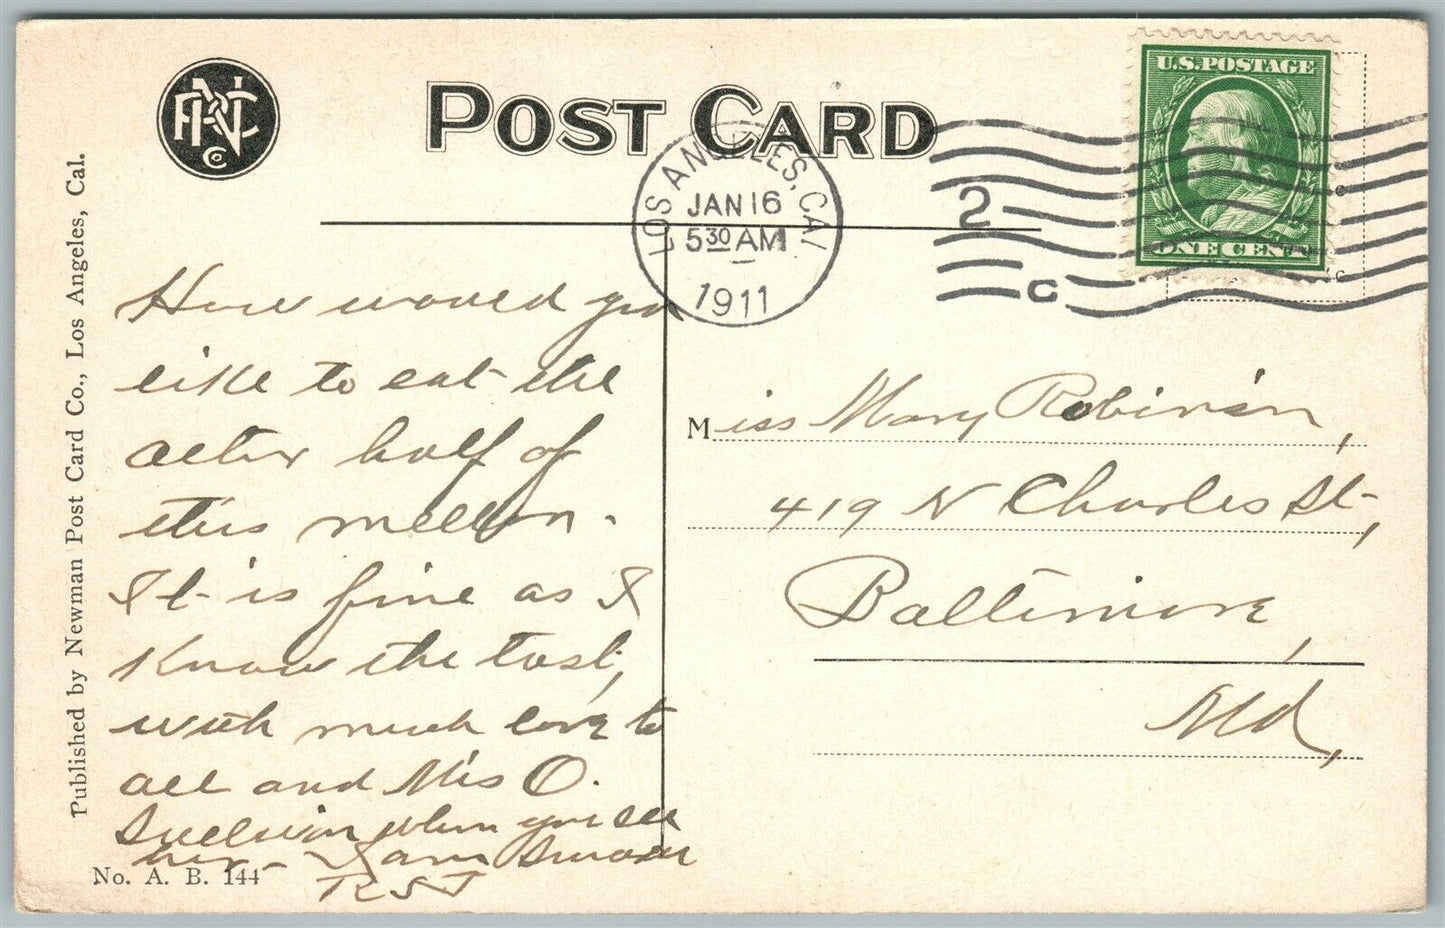 PNC Co
POST CARD
U.S. POSTAGE
ONE CENT
LOS ANGELES, CAL
JAN 16
5 30 AM
1911
2
C
Published by Newman Post Card Co., Los Angeles, Cal.
How would you
like to eat the
other half of
this mellon.
It is fine as I
know the tast,
with much love to
all and Mis O.
Sullivin when you see
her - I am
RST
No. A. B. 144
Miss Mary Robinson,
419 N Charles St,
Baltimore,
Md,